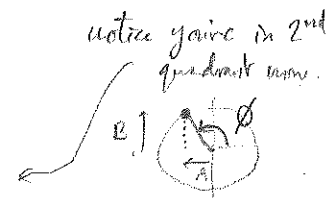 notice you're in 2nd
quadrant now.
B
A
ϕ